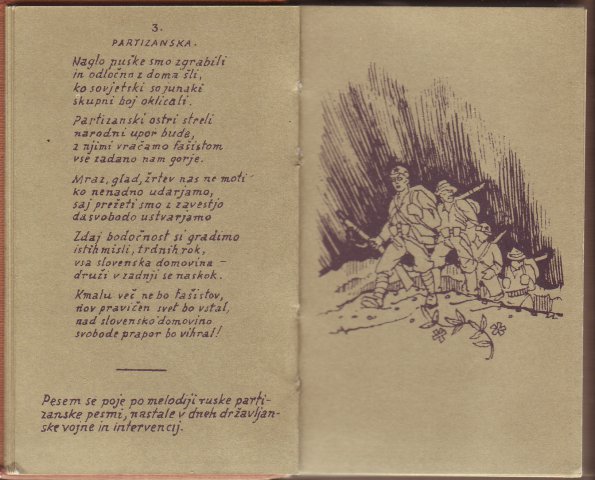 3.
PARTIZANSKA.
Naglo puške smo zgrabili
in odločno z doma šli,
ko sovjetski so junaki
skupni boj oklicali.
Partizanski ostri streli
narodni upor bude,
z njimi vračamo fašistom
vse zadano nam gorje.
Mraz, glad, žrtev nas ne moti
ko nenadno udarjamo,
saj prežeti smo z zavestjo
da svobodo ustvarjamo
Zdaj bodočnost si gradimo
istih misli, trdnih rok,
vsa slovenska domovina –
druži v zadnji se naskok.
Kmalu več ne bo fašistov,
nov pravičen svet bo vstal,
nad slovensko domovino
svobode prapor bo vihral!
Pesem se poje po melodiji ruske parti-
zanske pesmi, nastale v dneh državljan-
ske vojne in intervencij.